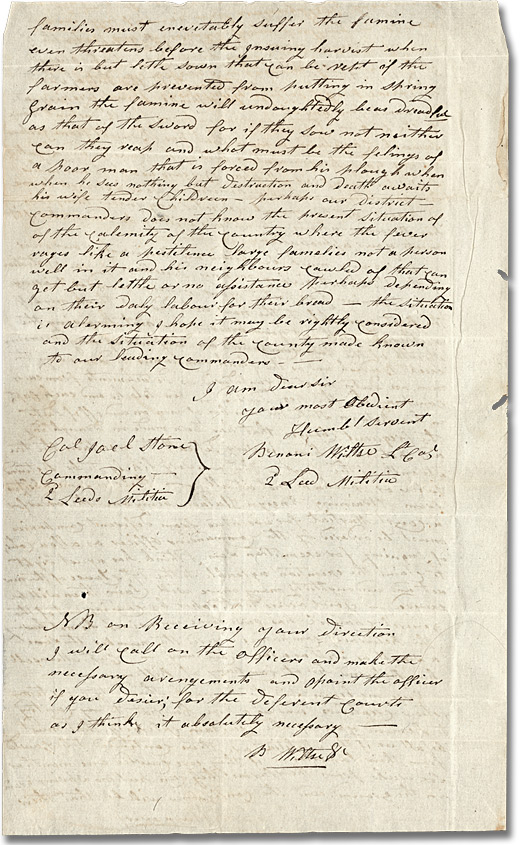 families must enevetably suffer the famine
even threatens before the insuing harvest when
there is but little sown that can be rept if the
farmers are prevented from putting in spring
Grain the famine will undoughtedly be as dreadful
as that of the sword for if they sow not neither
can they reap and what must be the felings of
a poor man that is forced from his plough when
when he sees nothing but Distruction and death awaits
his wife tender Children — perhaps our district
commanders does not know the present situation of
of the calemity of the country where the fever
rages like a pestilence large families not a person
well in it and his neighbours cawled of that can
get but little or no assistance perhaps depending
on their daly labour for their bread — the situation
is alarming I hope it may be rightly considered
and the situation of the county made known
to our leading commanders —
I am dear sir
your most Obedient
Humbl servent
Col Joel Stone
Commanding
2 Leeds Militia
Benoni Wiltse Lt Col
2 Leed Militia
NB on Receiving your direction
I will call on the officers and make the
necessary arengements and apoint the officer
if you desier, for the deferent Courts
as I think it absolutely necessary —
B Wiltse